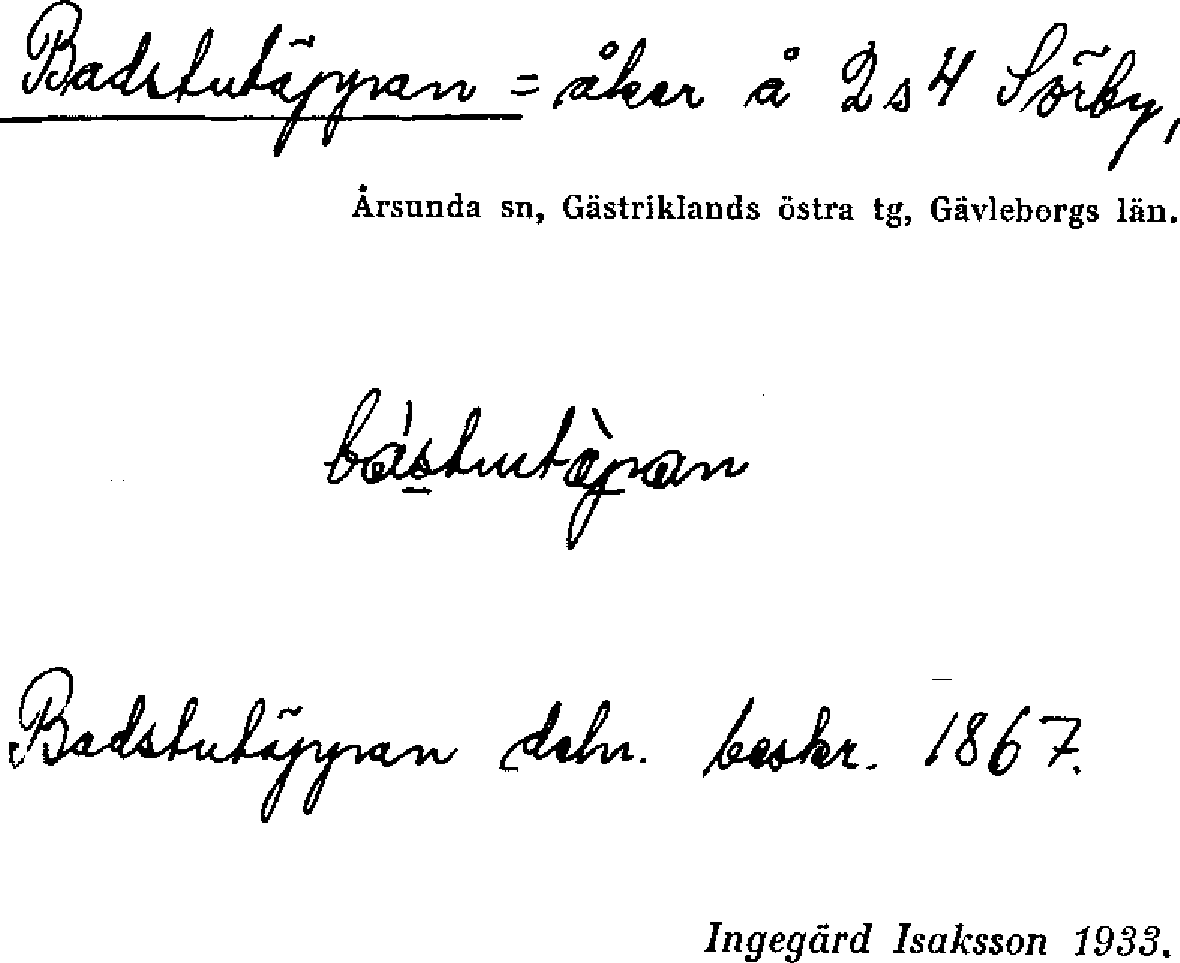 Badstutäppan = åker å 2 s 4 Sörby,
Årsunda sn, Gästriklands östra tg, Gävleborgs län.
bástutàpan
Badstutäppan deln. beskr. 1867.
Ingegärd Isaksson 1933.